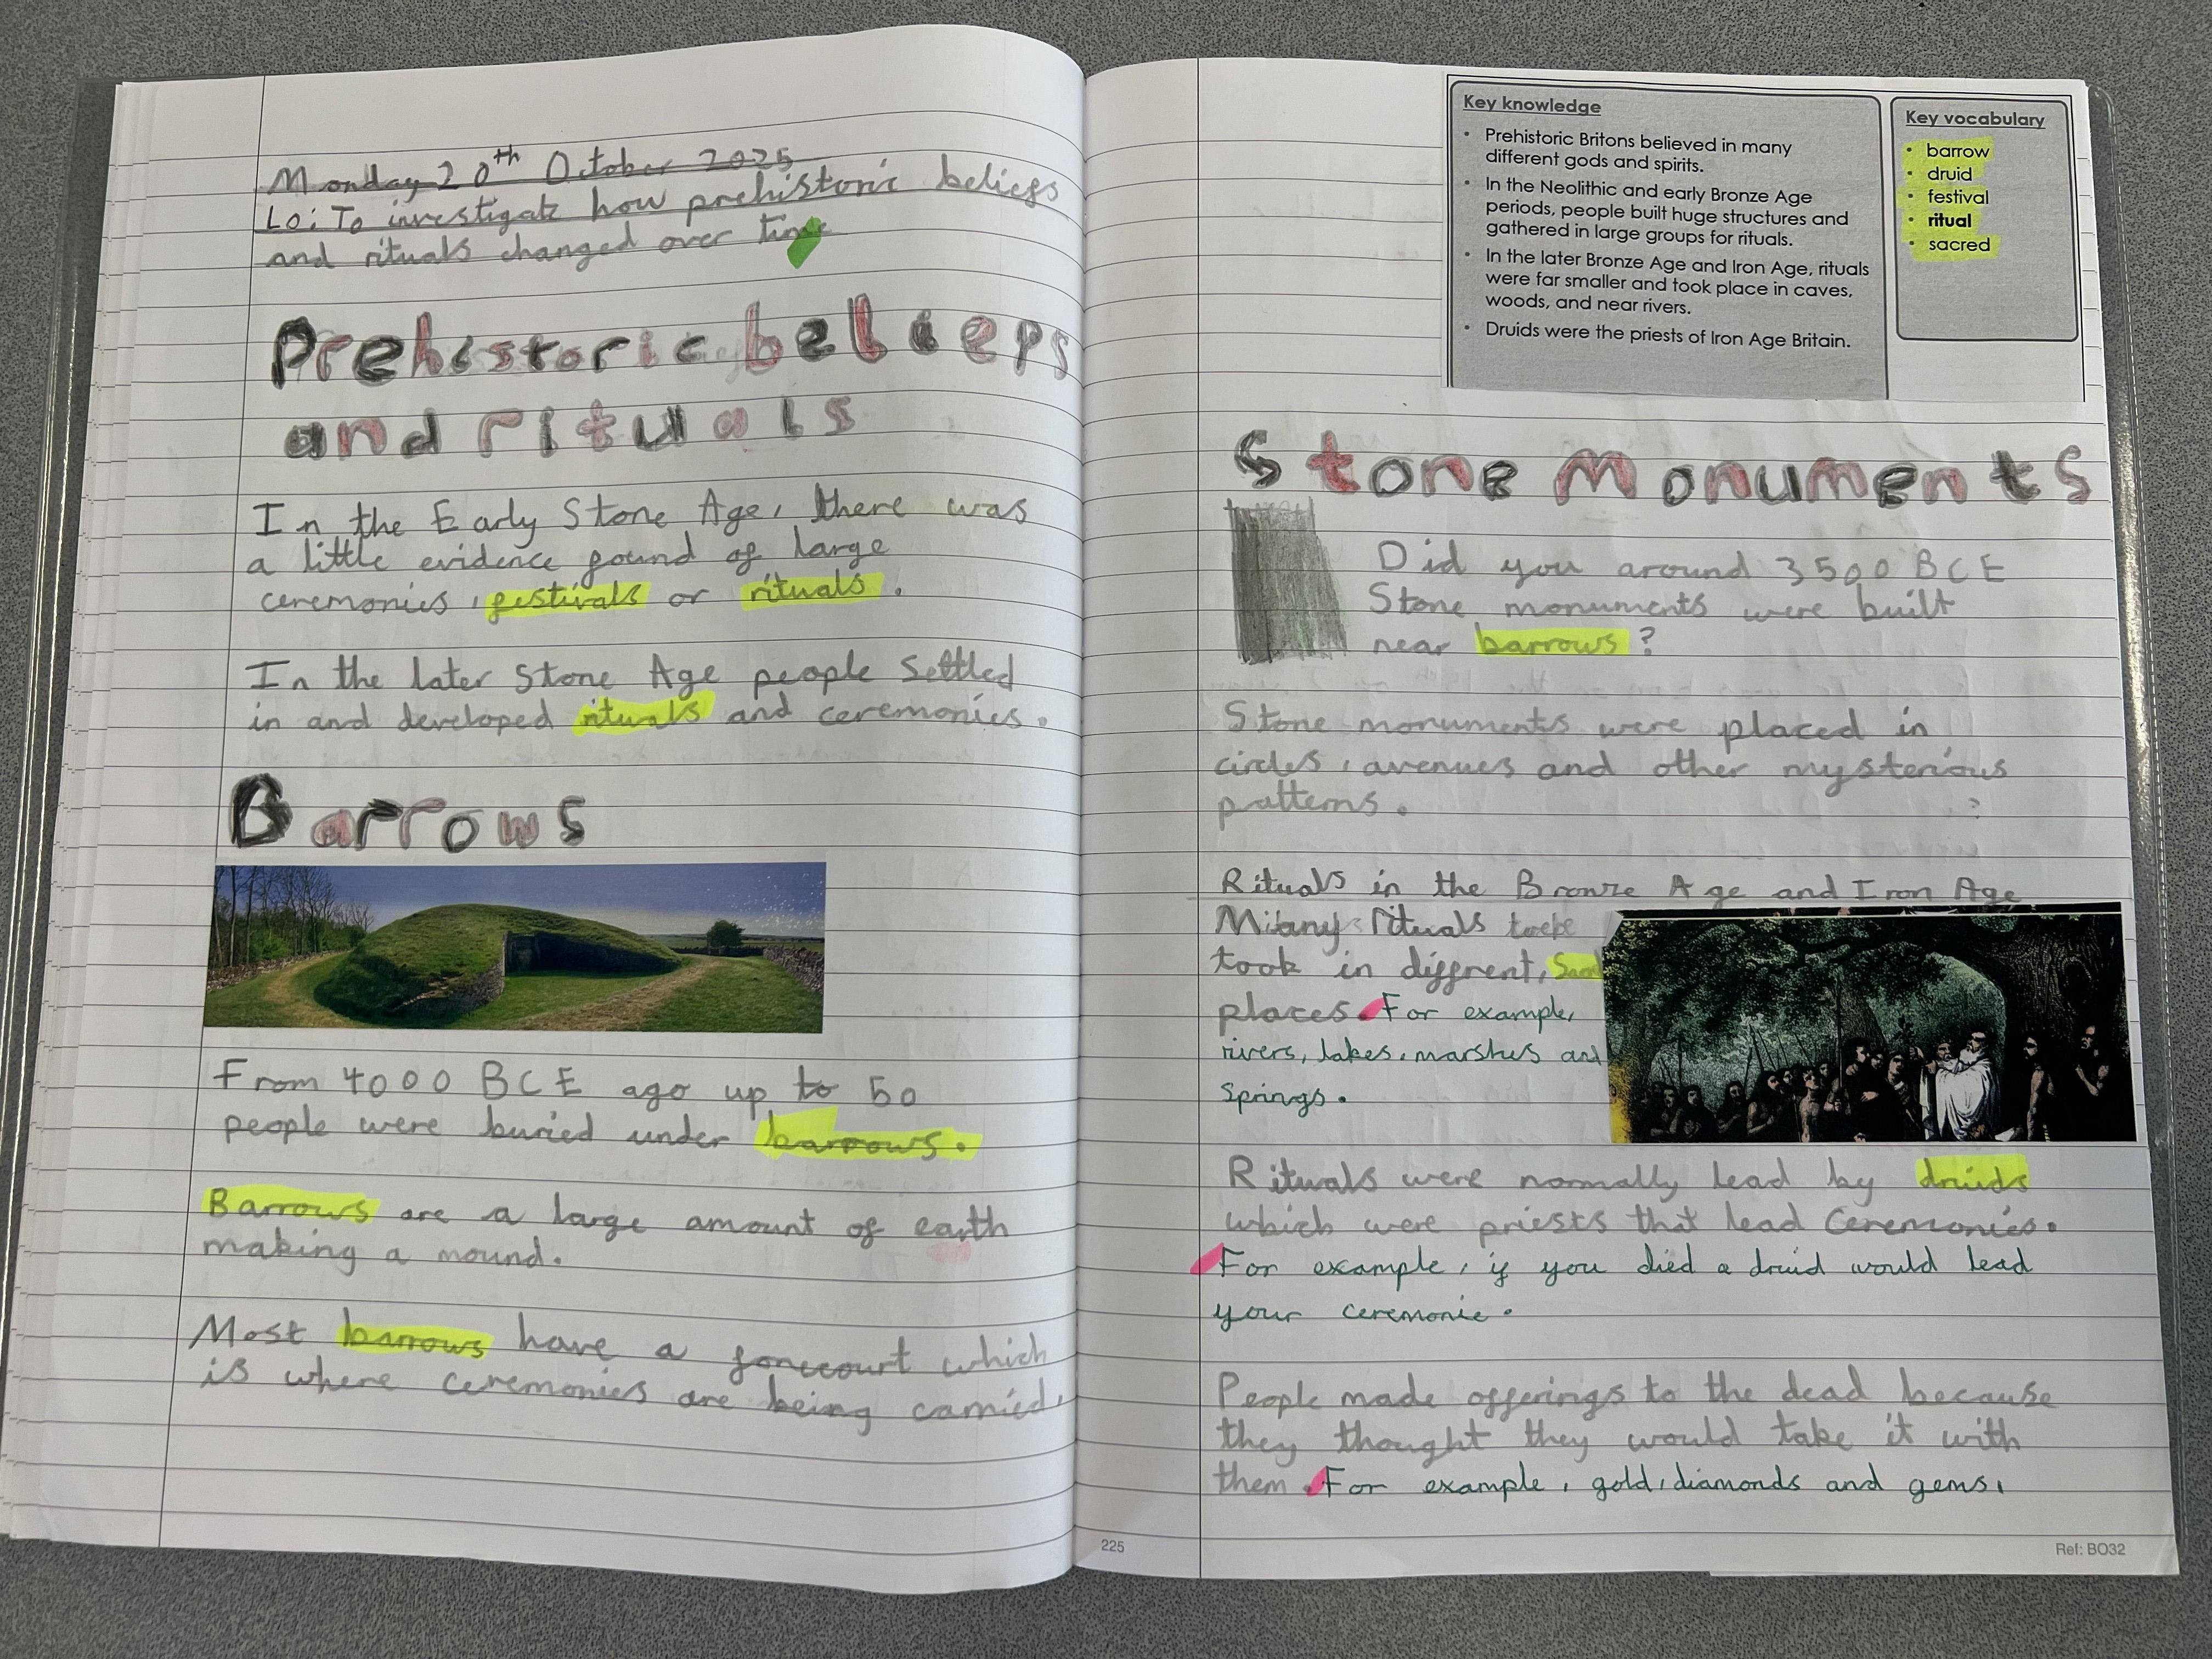 Monday 20th October 2025
Lo: To investigate how prehistoric beliefs
and rituals changed over time
Prehistoric beliefs
and rituals
In the Early Stone Age, there was
a little evidence found of large
ceremonies, festivals or rituals.
In the later Stone Age people settled
in and developed rituals and ceremonies.
Barrows
From 4000 BCE ago up to 50
people were buried under barrows.
Barrows are a large amount of earth
making a mound.
Most barrows have a forecourt which
is where ceremonies are being carried.
Key knowledge
• Prehistoric Britons believed in many
different gods and spirits.
• In the Neolithic and early Bronze Age
periods, people built huge structures and
gathered in large groups for rituals.
• In the later Bronze Age and Iron Age, rituals
were far smaller and took place in caves,
woods, and near rivers.
• Druids were the priests of Iron Age Britain.
Key vocabulary
• barrow
• druid
• festival
• ritual
• sacred
Stone Monuments
Did you around 3500 BCE
Stone monuments were built
near barrows?
Stone monuments were placed in
circles, avenues and other mysterious
patterns.
Rituals in the Bronze Age and Iron Age
Many rituals
took in diffrent,
places. For example,
rivers, lakes, marshes and
springs.
Rituals were normally lead by druids
which were priests that lead Ceremonies.
For example, if you died a druid would lead
your ceremonie.
People made offerings to the dead because
they thought they would take it with
them. For example, gold, diamonds and gems.
225
Ref: BO32